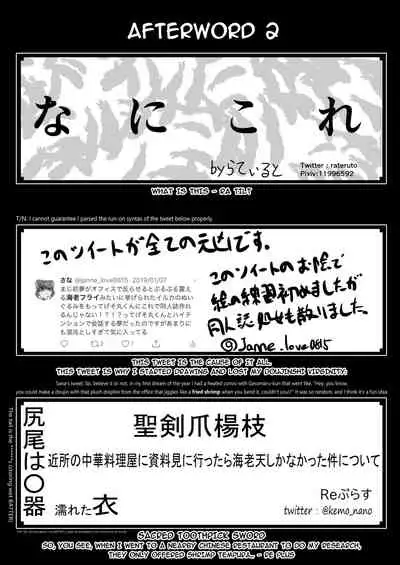 AFTERWORD 2
なにこれ
byらていると
Twitter : rateruto
Pixiv:11996592
WHAT IS THIS - RA TILT
T/N: I cannot guarantee I parsed the run-on syntax of the tweet below properly.
このツイートが全ての元凶です。
さな @janne_love0815 · 2019/01/07
まじ初夢がオフィスで反らせるとぷるぷる震える海老フライみたいに挙げられたイルカのぬいぐるみをもってげそ丸くんにこれで同人誌作れるんじゃない!？！？ってげそ丸くんとハイテンションで会話する夢だったのですがあまりにも混沌としすぎて気に入ってる
このツイートのお陰で
絵の練習初めましたが
同人誌処女も散りました。
©Janne_love0815
THIS TWEET IS THE CAUSE OF IT ALL.
THIS TWEET IS WHY I STARTED DRAWING AND LOST MY DOUJINSHI VIRGINITY.
Sana's tweet: So, believe it or not, in my first dream of the year I had a heated convo with Gesomaru-kun that went like, "Hey, you know,
you could make a doujin with that plush dolphin from the office that jiggles like a fried shrimp when you bend it, couldn't you!?" It was so random, and I think it's a fun idea.
尻尾は〇器
濡れた衣
聖剣爪楊枝
近所の中華料理屋に資料見に行ったら海老天しかなかった件について
Reぷらす
twitter : @kemo_nano
SACRED TOOTHPICK SWORD
SO, YOU SEE, WHEN I WENT TO A NEARBY CHINESE RESTAURANT TO DO MY RESEARCH,
THEY ONLY OFFERED SHRIMP TEMPURA... - RE PLUS